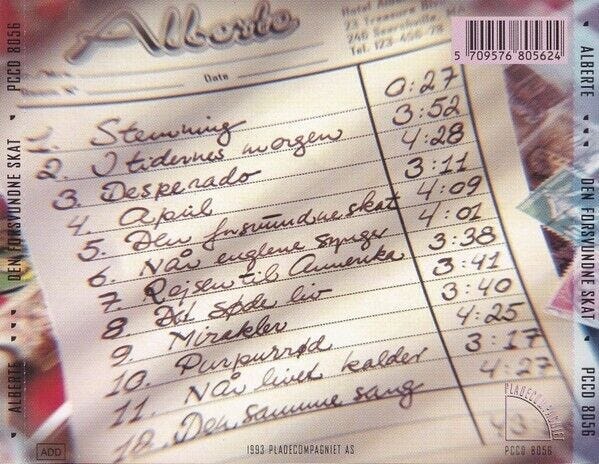 Alberte
Hotel
23 Treasure
246
Tel. 123 456 78
Date
5 709576 805624
1. Stemning 0:27
2. I tidernes morgen 3:52
3. Desperado 4:28
4. April 3:11
5. Den forsvundne skat 4:09
6. Når englene synger 4:01
7. Rejsen til Amerika 3:38
8. Det søde liv 3:41
9. Mirakler 3:40
10. Purpurrød 4:25
11. Når livet kalder 3:17
12. Den samme sang 4:27
ADD
1993 PLADECOMPAGNIET AS
PLADECOMPAGNIET
PCCD 8056
ALBERTE DEN FORSVUNDNE SKAT PCCD 8056
ALBERTE DEN FORSVUNDNE SKAT PCCD 8056